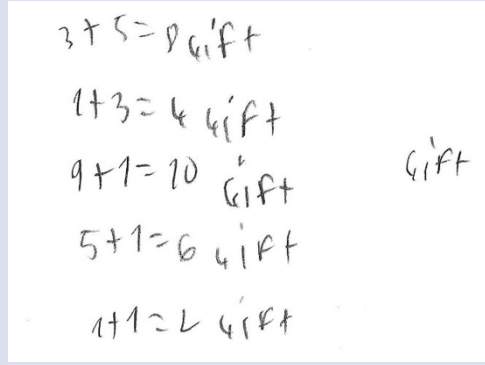 3+5=8 çift
1+3=4 çift
9+1=10 çift
çift
5+1=6 çift
1+1=2 çift